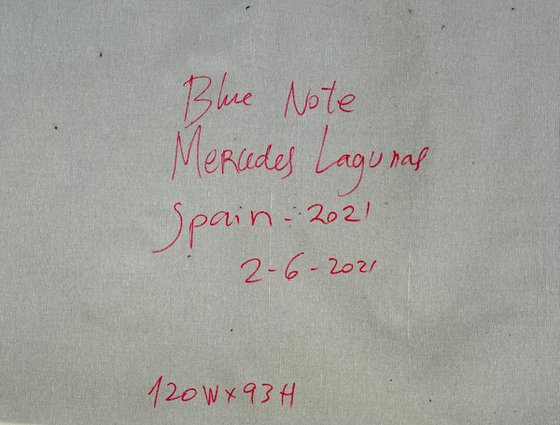 Blue Note
Mercedes Lagunas
Spain - 2021
2-6-2021
120W x 93H